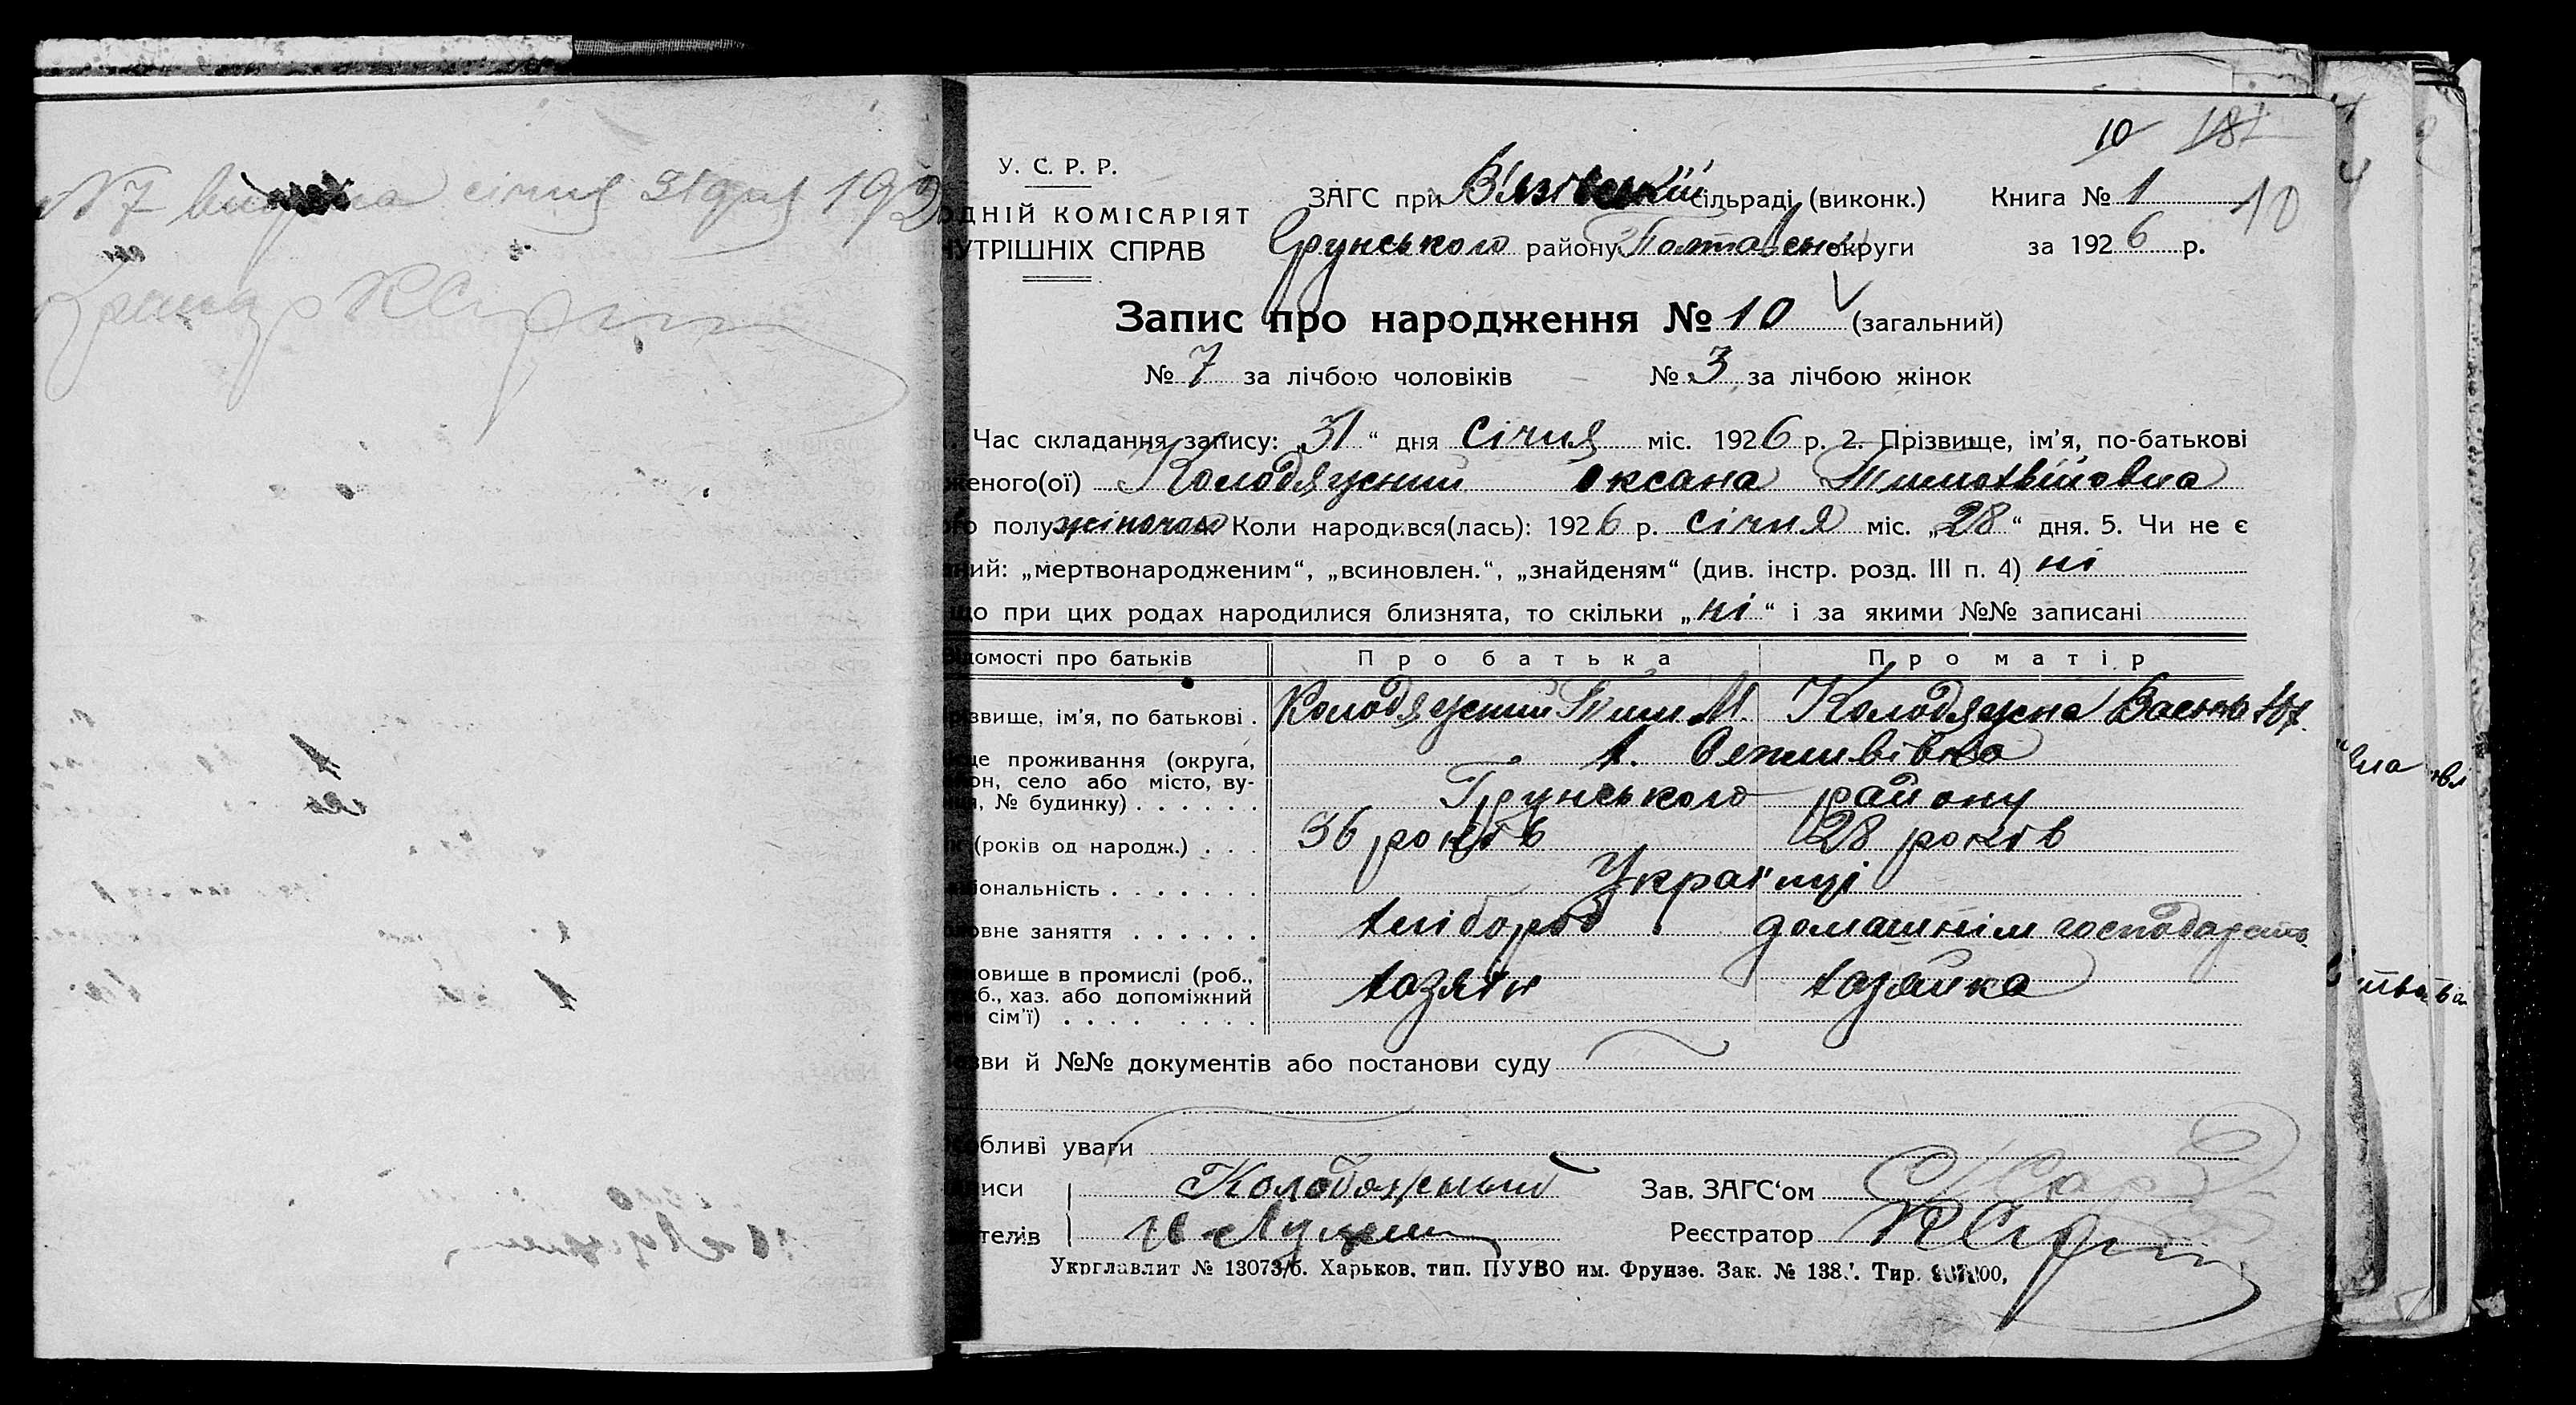 № 7 січня 31 дня 192
10 181
У. С. Р. Р.
ОДНІЙ КОМІСАРІЯТ
НУТРІШНІХ СПРАВ
ЗАГС при В'язівській сільраді (виконк.)
Грунського району Полтавськ округи
Книга № 1 10
за 1926 р.
Запис про народження № 10 (загальний)
№ 7 за лічбою чоловіків № 3 за лічбою жінок
Час складання запису: 31 “ дня січня міс. 1926 р. 2. Прізвище, ім'я, по-батькові
женого(ої) Колодяжний Оксана Тимохвійовна
го полу жіночого Коли народився(лась): 1926 р. січня міс. „28“ дня. 5. Чи не є
аний: „мертвонародженим“, „всиновлен.“, „знайденям“ (див. інстр. розд. III п. 4) ні
що при цих родах народилися близнята, то скільки „ні“ і за якими №№ записані
ідомості про батьків Про батька Про матір
ізвище, ім'я, по батькові . Колодяжний Тим М. Колодяжна
це проживання (округа, х.
он, село або місто, ву-
, № будинку) . . . . . . Грунського району
(років од народж.) . . . 36 років 28 років
іональність . . . . . . . Українці
овне заняття . . . . . . хлібороб домашнім господарство
новище в промислі (роб.,
жб., хаз. або допоміжний хазяїн хазяйка
сім'ї) . . . . . . . .
зви й №№ документів або постанови суду
обливі уваги
иси Колодяжный Зав. ЗАГС‘ом
телів Реєстратор
Укрглавлит № 13073/б. Харьков, тип. ПУУВО им. Фрунзе. Зак. № 138 . Тир.